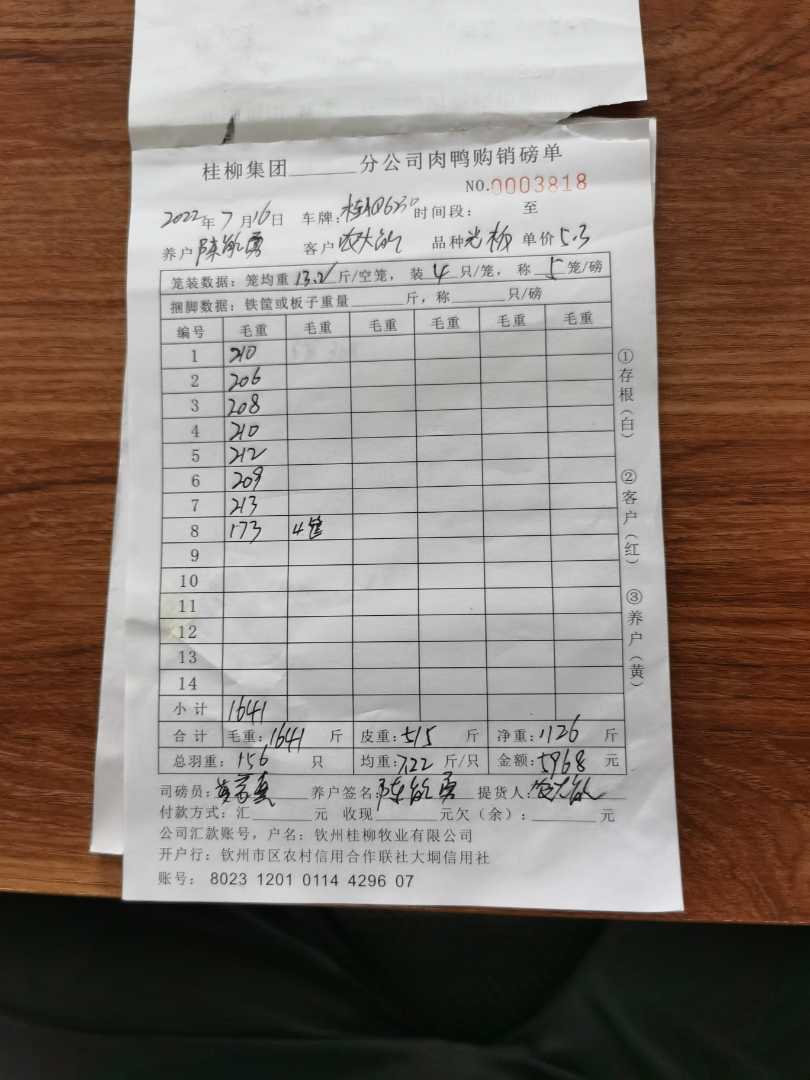 桂柳集团______分公司肉鸭购销磅单
NO.0003818
2022年7月16日 车牌: 时间段: 至
养户 陈敏勇 客户 农大敏 品种 光板 单价 5.3
笼装数据：笼均重 13.2 斤/空笼， 装 4 只/笼， 称 5 笼/磅
捆脚数据：铁筐或板子重量______斤，称______只/磅
编号 毛重 毛重 毛重 毛重 毛重 毛重
1 210
2 206
3 208
4 210
5 212
6 209
7 213
8 173 4笼
9
10
11
12
13
14
小计 1641
合计 毛重:1641 斤 皮重:515 斤 净重:1126 斤
总羽重:156 只 均重:7.22 斤/只 金额:5968 元
司磅员: 养户签名:陈敏勇 提货人:农大敏
付款方式：汇______元 收现______元欠（余）:______元
公司汇款账号，户名：钦州桂柳牧业有限公司
开户行：钦州市区农村信用合作联社大垌信用社
账号： 8023 1201 0114 4296 07
①存根（白） ②客户（红） ③养户（黄）